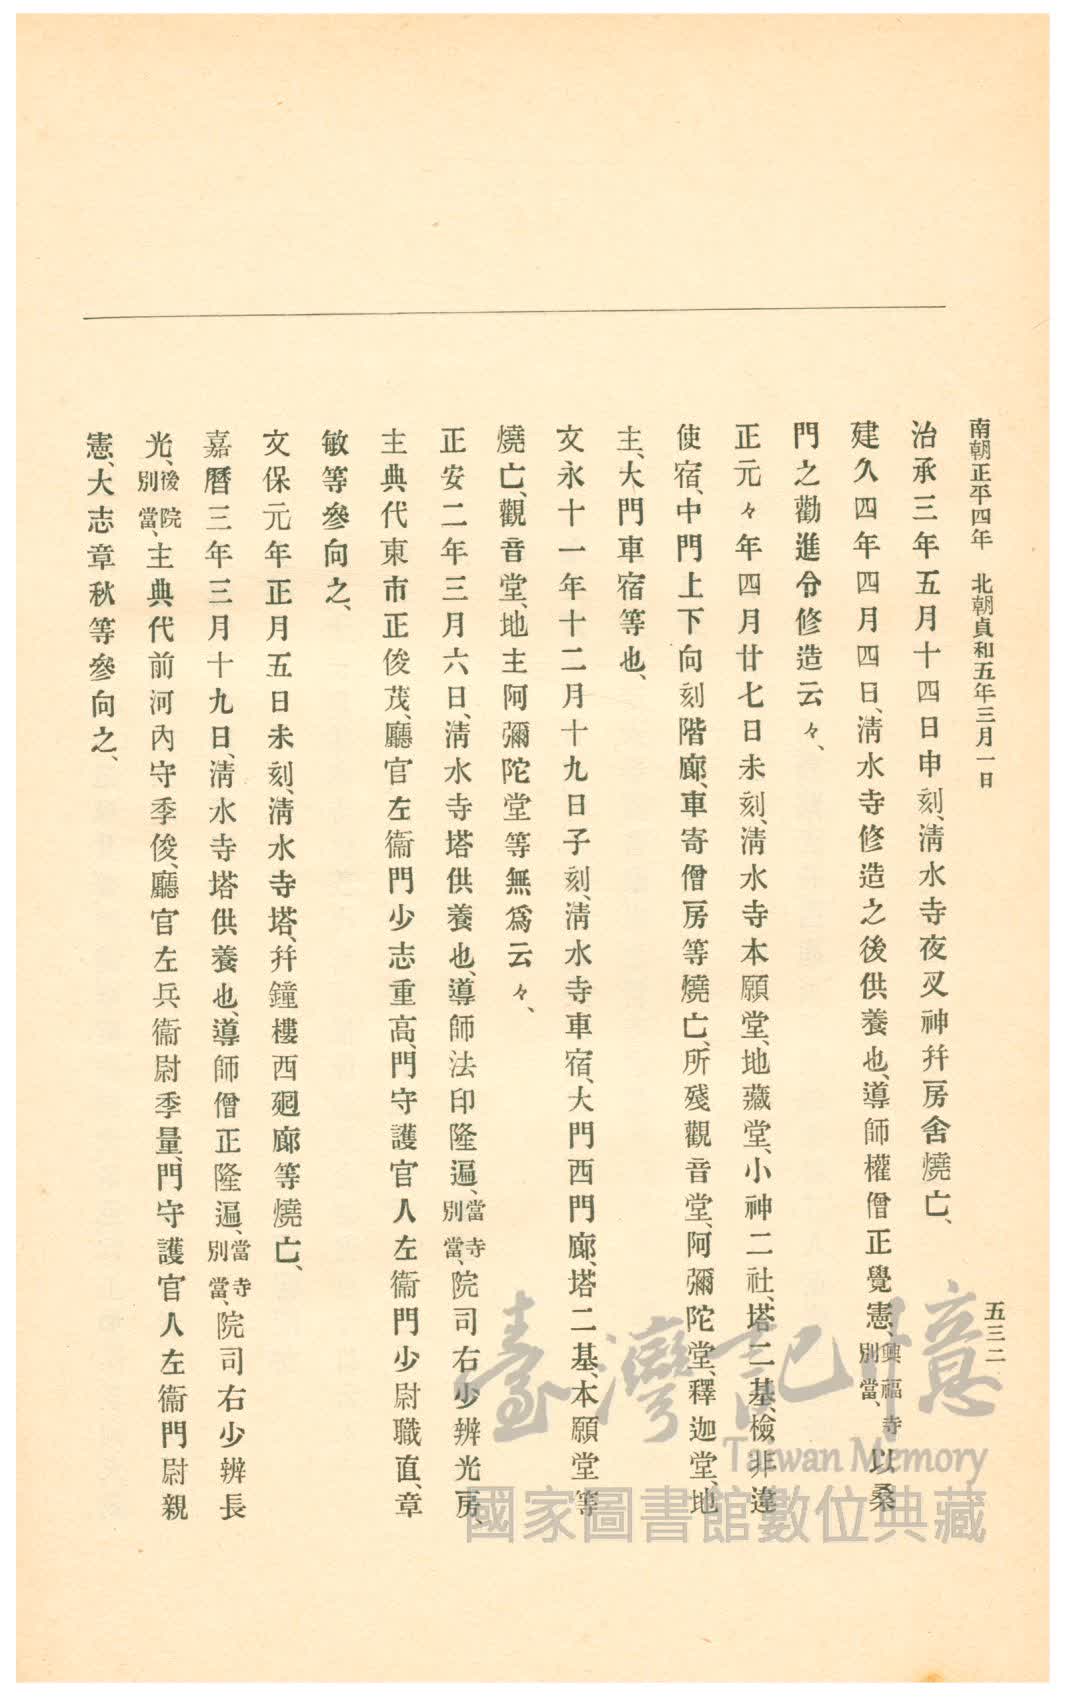 南朝正平四年　北朝貞和五年三月一日
五三二
治承三年五月十四日申刻、淸水寺夜叉神幷房舍燒亡、
建久四年四月四日、淸水寺修造之後供養也、導師權僧正覺憲、興福寺別當、以桑
門之勸進令修造云々、
正元々年四月廿七日未刻、淸水寺本願堂、地藏堂、小神二社、塔二基、檢非違
使宿、中門上下向刻階廊、車寄僧房等燒亡、所殘觀音堂、阿彌陀堂、釋迦堂、地
主、大門車宿等也、
文永十一年十二月十九日子刻、淸水寺車宿、大門西門廊、塔二基、本願堂等
燒亡、觀音堂、地主阿彌陀堂等無爲云々、
正安二年三月六日、淸水寺塔供養也、導師法印隆遍、當寺別當、院司右少辨光房、
主典代東市正俊茂、廳官左衞門少志重高、門守護官人左衞門少尉職直、章
敏等參向之、
文保元年正月五日未刻、淸水寺塔、幷鐘樓西廻廊等燒亡、
嘉曆三年三月十九日、淸水寺塔供養也、導師僧正隆遍、當寺別當、院司右少辨長
光、後院別當、主典代前河內守季俊、廳官左兵衞尉季量、門守護官人左衞門尉親
憲、大志章秋等參向之、
臺灣記憶
Taiwan Memory
國家圖書館數位典藏